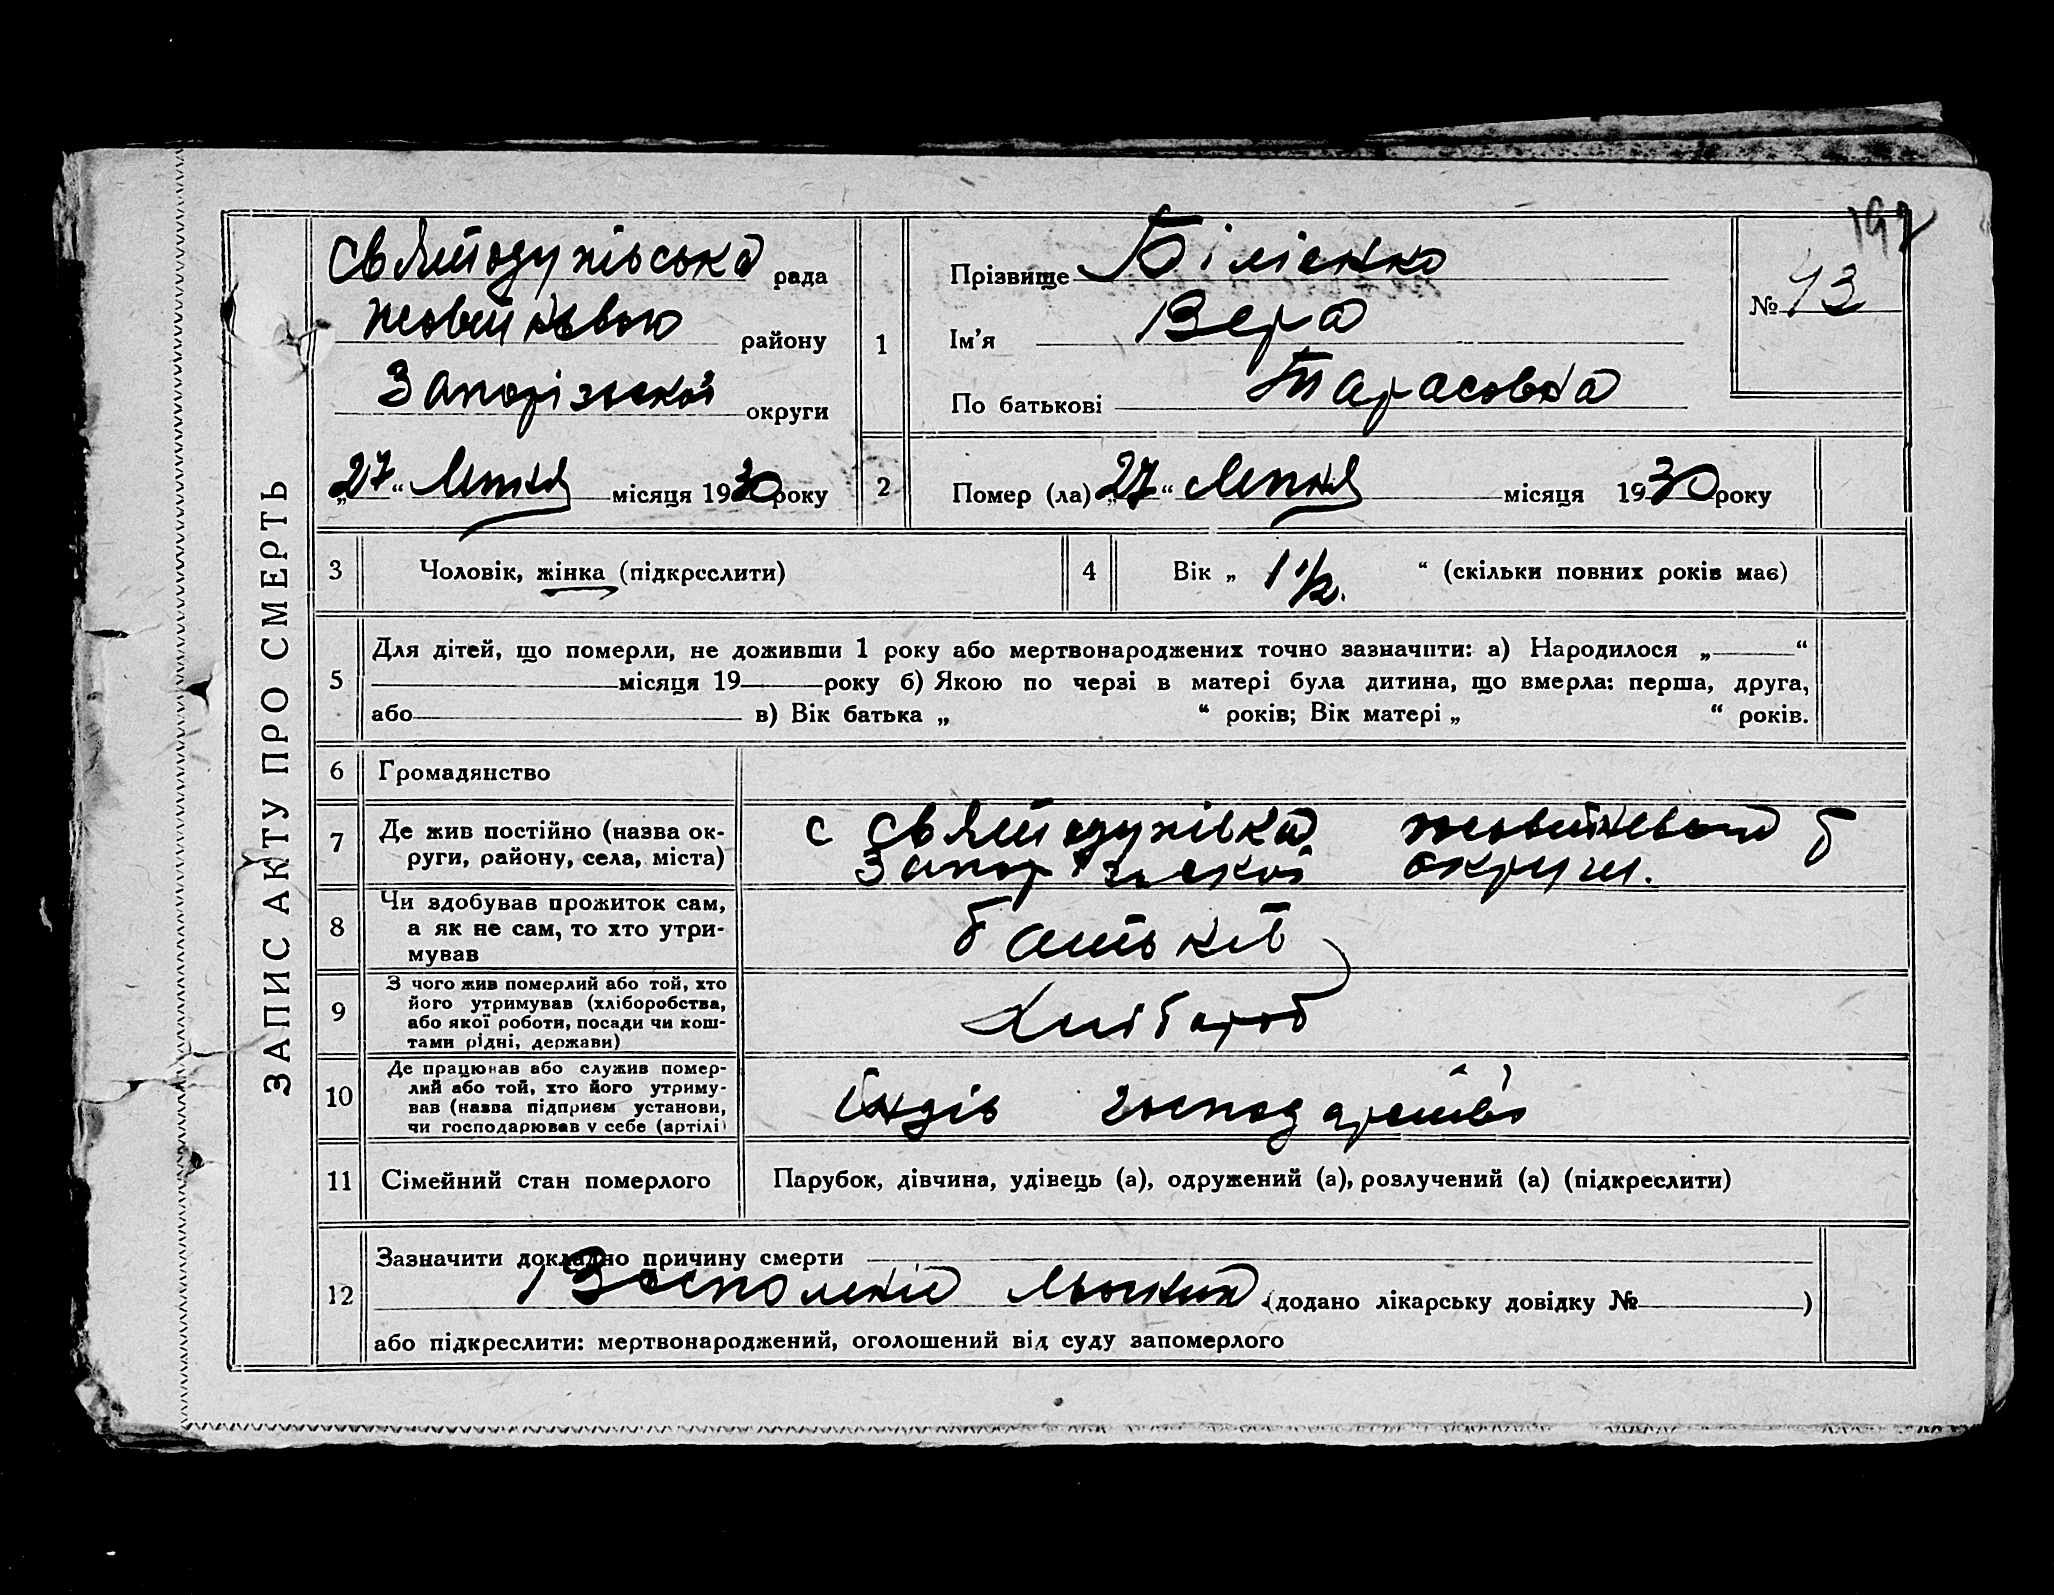 197
ЗАПИС АКТУ ПРО СМЕРТЬ
Святодухівська рада
району
Запорізької округи
„27“ Липня місяця 1930 року
1
Прізвище Біліенко
Ім'я Вера
По батькові Тарасовна
№ 13
2
Помер (ла) „27“ Липня місяця 1930 року
3 Чоловік, жінка (підкреслити)
4 Вік „ 1 1/2. “ (скільки повних років має)
5
Для дітей, що померли, не доживши 1 року або мертвонароджених точно зазначити: а) Народилося „ “
місяця 19 року б) Якою по черзі в матері була дитина, що вмерла: перша, друга,
або в) Вік батька „ “ років; Вік матері „ “ років.
6 Громадянство
7
Де жив постійно (назва ок-
руги, району, села, міста)
с Святодухівка
Запорізької округи.
8
Чи здобував прожиток сам,
а як не сам, то хто утри-
мував
батьків
9
З чого жив померлий або той, хто
його утримував (хліборобства,
або якої роботи, посади чи кош-
тами рідні, держави)
Хлібороб
10
Де працював або служив помер-
лий або той, хто його утриму-
вав (назва підприєм установи,
чи господарював у себе (артілі)
господарство
11 Сімейний стан померлого
Парубок, дівчина, удівець (а), одружений (а), розлучений (а) (підкреслити)
12
Зазначити докладно причину смерти
Восполеніе (додано лікарську довідку № )
або підкреслити: мертвонароджений, оголошений від суду запомерлого